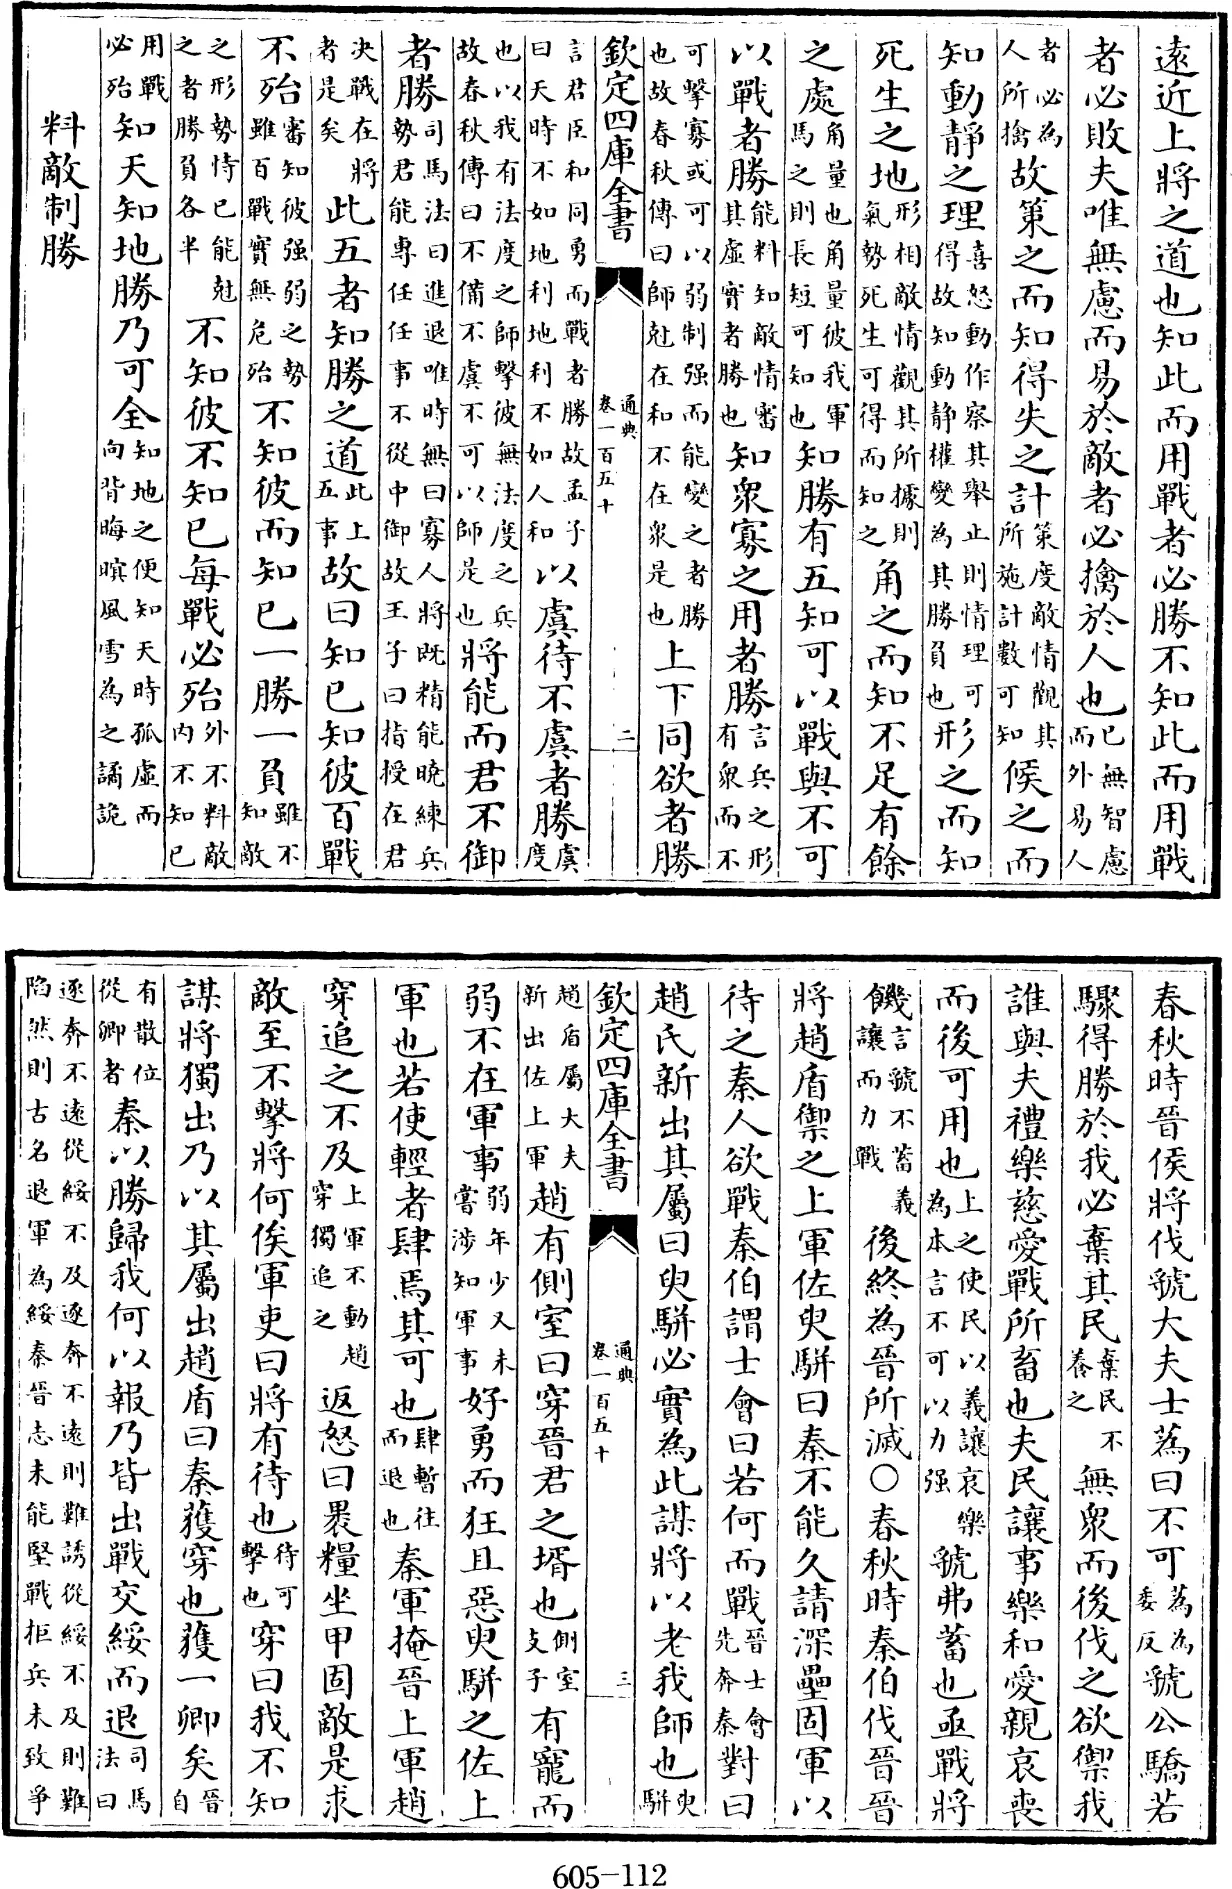 遠近上將之道也知此而用戰者必勝不知此而用戰
者必敗夫唯無慮而易於敵者必擒於人也已無智慮而外易人
者必為人所擒故策之而知得失之計策度敵情觀其所施計數可知候之而
知動靜之理喜怒動作察其舉止則情理可得故知動静權變為其勝負也形之而知
死生之地形相敵情觀其所據則氣勢死生可得而知之角之而知不足有餘
之處角量也角量彼我軍馬之則長短可知也知勝有五知可以戰與不可
以戰者勝能料知敵情審其虛實者勝也知衆寡之用者勝言兵之形有衆而不
可擊寡或可以弱制强而能變之者勝也故春秋傳曰師尅在和不在衆是也上下同欲者勝
欽定四庫全書 通典卷一百五十 二
言君臣和同勇而戰者勝故孟子曰天時不如地利地利不如人和以虞待不虞者勝虞度
也以我有法度之師擊彼無法度之兵故春秋傳曰不備不虞不可以師是也將能而君不御
者勝司馬法曰進退唯時無曰寡人將既精能曉練兵勢君能專任任事不從中御故王子曰指授在君
决戰在將者是矣此五者知勝之道此上五事故曰知已知彼百戰
不殆審知彼强弱之勢雖百戰實無危殆不知彼而知已一勝一負雖不知敵
之形勢恃已能尅之者勝負各半不知彼不知已每戰必殆外不料敵内不知已
用戰必殆知天知地勝乃可全知地之便知天時孤虛而向背晦暝風雪為之譎詭
料敵制勝
春秋時晉侯將伐虢大夫士蒍曰不可蒍為委反虢公驕若
驟得勝於我必棄其民棄民不養之無衆而後伐之欲禦我
誰與夫禮樂慈愛戰所畜也夫民讓事樂和愛親哀喪
而後可用也上之使民以義讓哀樂為本言不可以力强虢弗蓄也亟戰將
饑言虢不蓄義讓而力戰後終為晉所滅○春秋時秦伯伐晉晉
將趙盾禦之上軍佐臾駢曰秦不能久請深壘固軍以
待之秦人欲戰秦伯謂士會曰若何而戰晉士會先奔秦對曰
趙氏新出其屬曰臾駢必實為此謀將以老我師也臾駢
欽定四庫全書 通典卷一百五十 三
趙盾屬大夫新出佐上軍趙有側室曰穿晉君之壻也側室支子有寵而
弱不在軍事弱年少又未嘗涉知軍事好勇而狂且惡臾駢之佐上
軍也若使輕者肆焉其可也肆暫往而退也秦軍掩晉上軍趙
穿追之不及上軍不動趙穿獨追之返怒曰褁糧坐甲固敵是求
敵至不擊將何俟軍吏曰將有待也待可擊也穿曰我不知
謀將獨出乃以其屬出趙盾曰秦獲穿也獲一卿矣晉自
有散位從卿者秦以勝歸我何以報乃皆出戰交綏而退司馬法曰
逐奔不遠從綏不及逐奔不遠則難誘從綏不及則難陷然則古名退軍為綏秦晉志未能堅戰拒兵未致爭
605-112